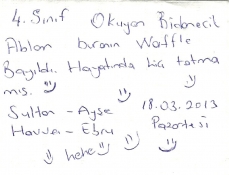 4. Sınıf Okuyan Bidonecil
Ablan buranın Waffle
Bayıldı. Hayatında hiç tatma
mış.
Sultan - Ayşe 18.03.2013
Havva - Ebru Pazartesi
hehe